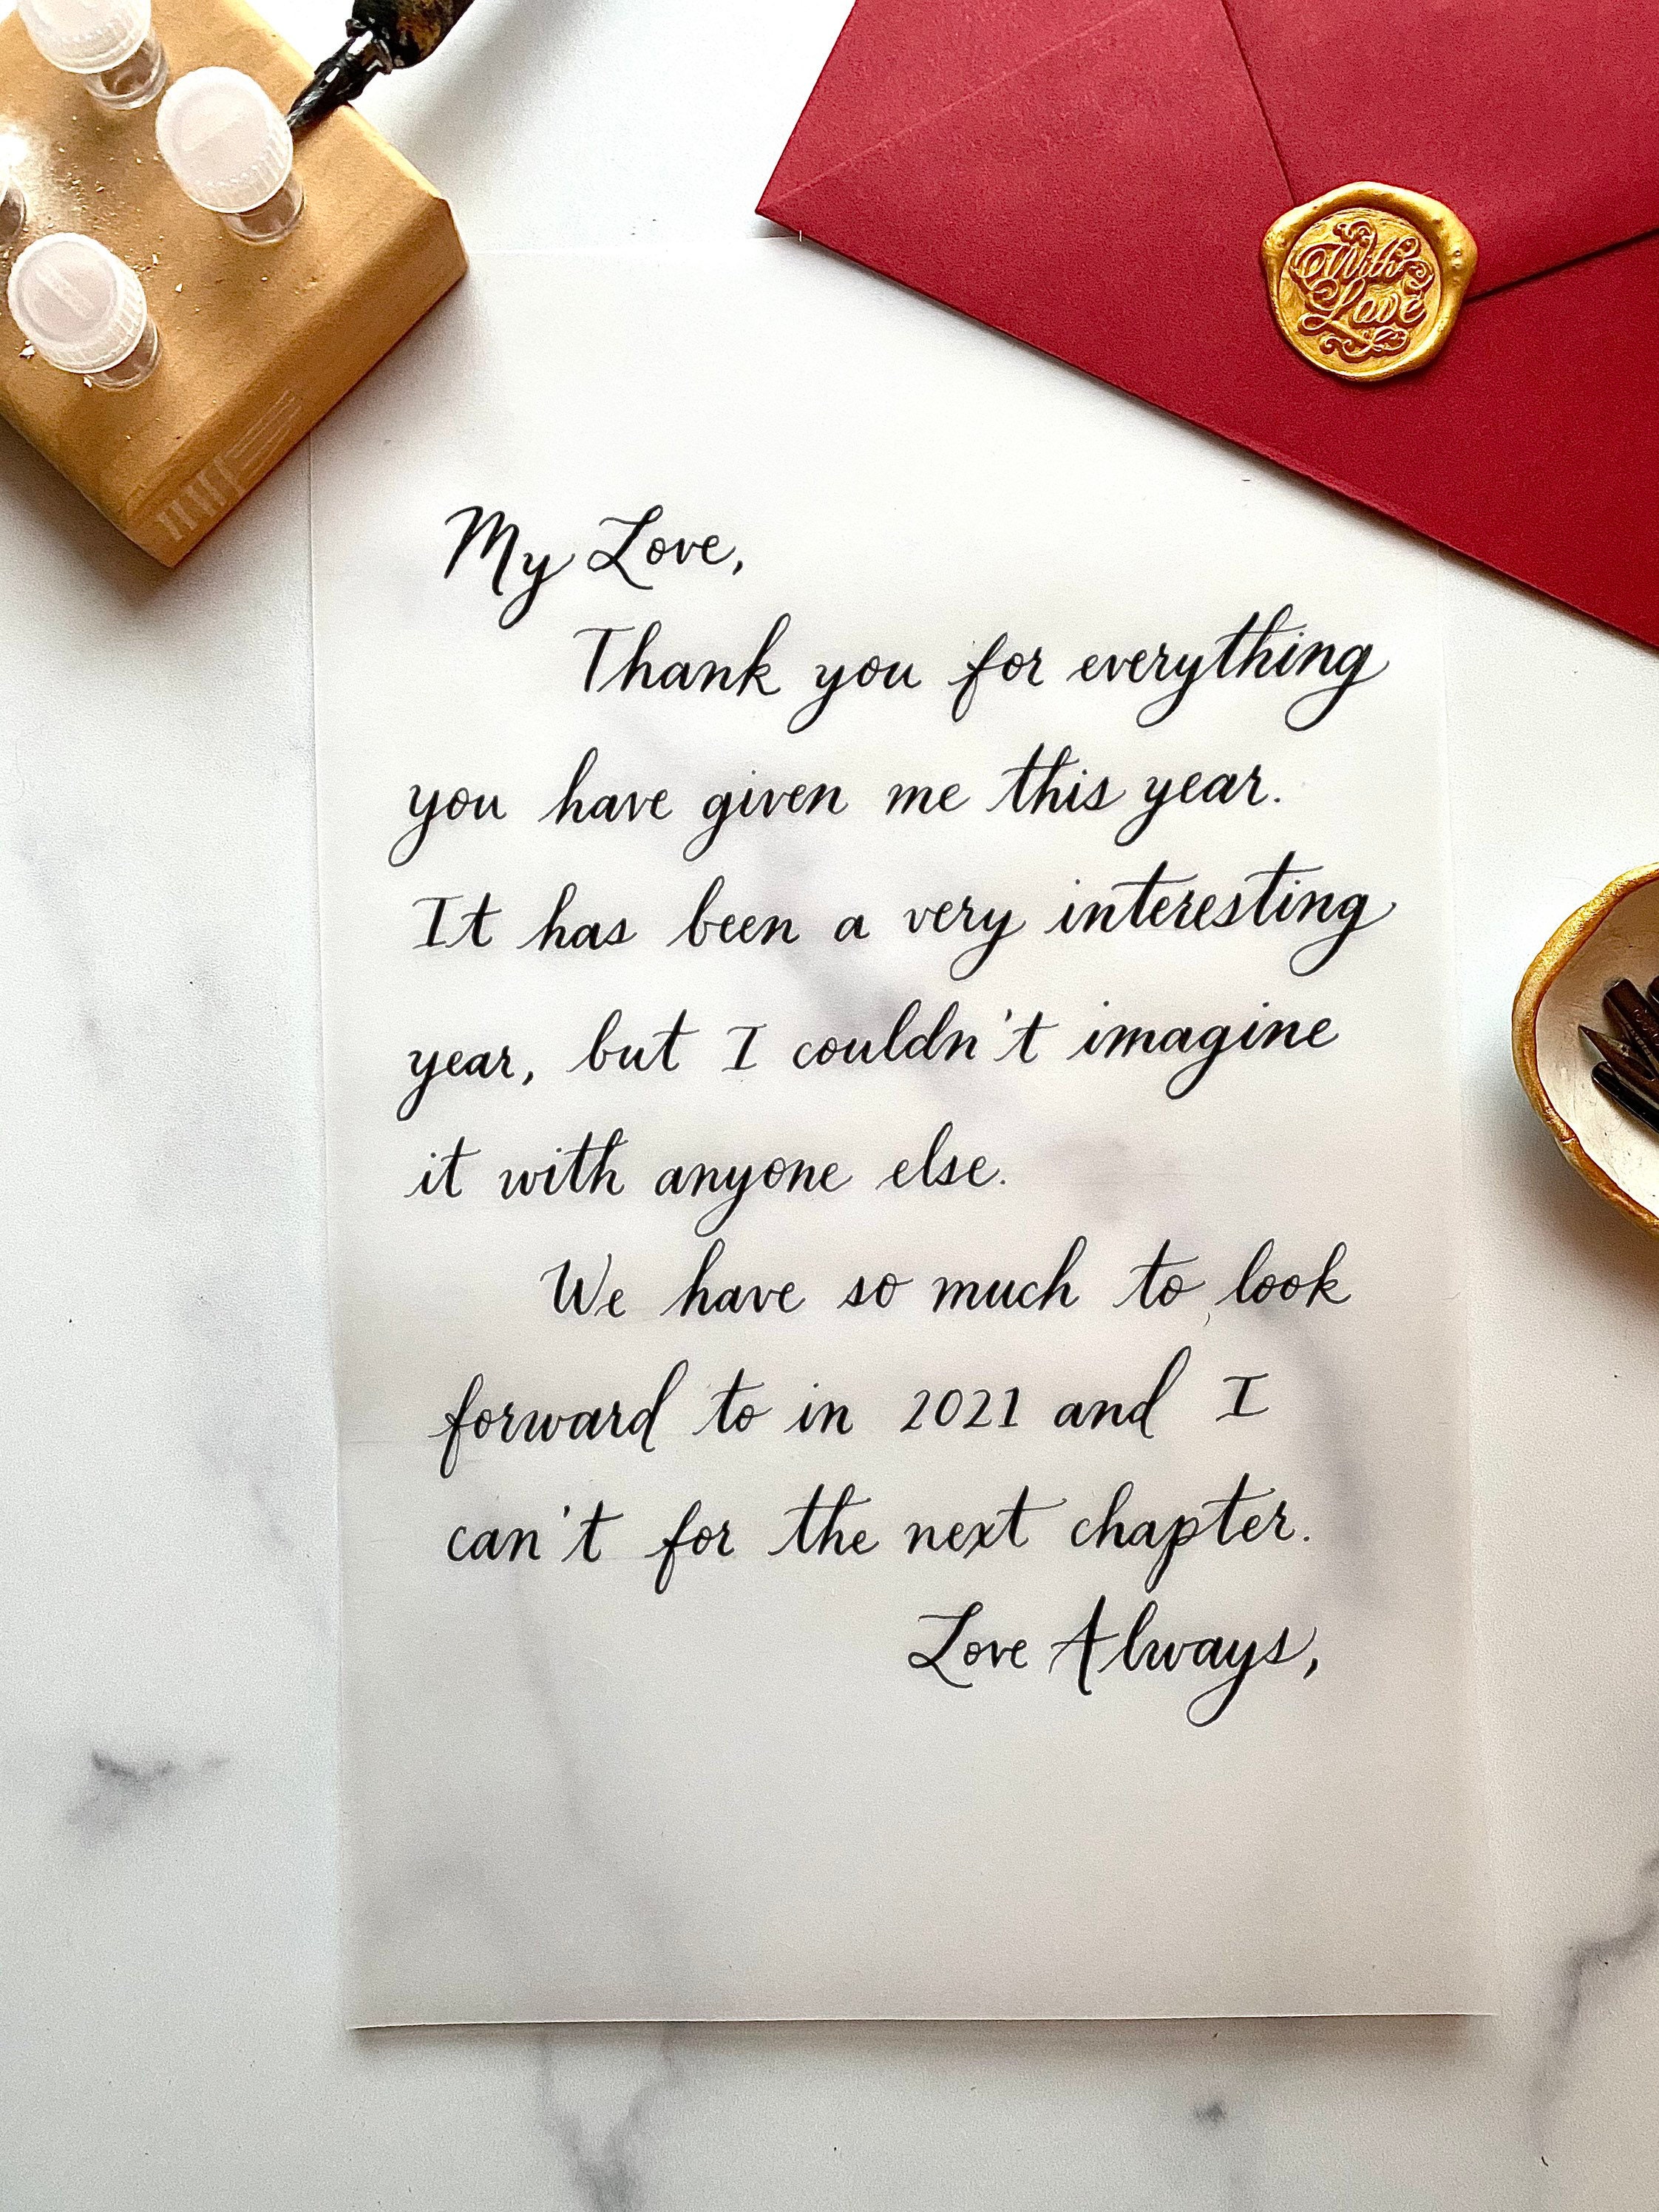 With
Love
My Love,
Thank you for everything
you have given me this year.
It has been a very interesting
year, but I couldn't imagine
it with anyone else.
We have so much to look
forward to in 2021 and I
can't for the next chapter.
Love Always,